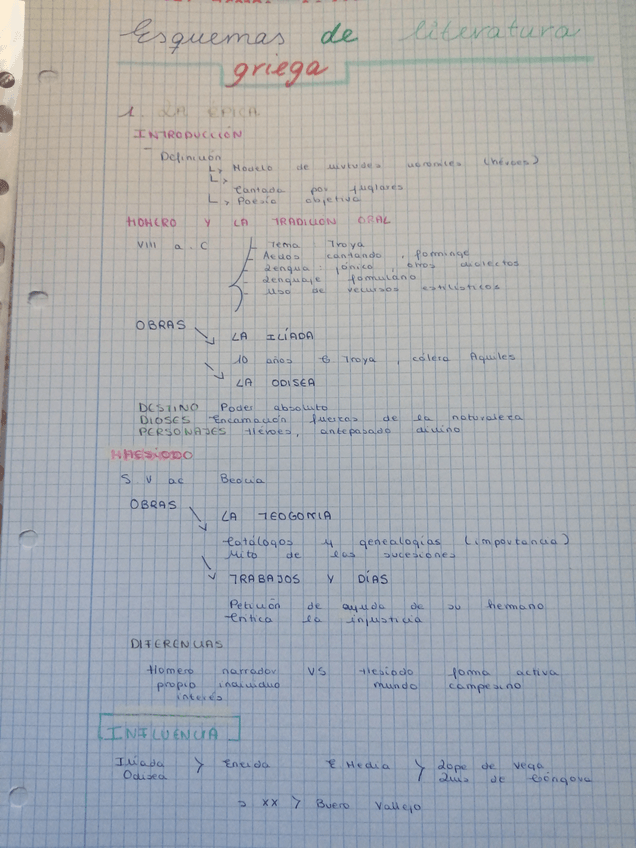 Esquemas de literatura
griega
1. LA EPICA
INTRODUCCIÓN
- Definición
↳ Modelo de virtudes morales (héroes)
↳
Cantada por juglares
↳ Poesía objetiva
HOMERO Y LA TRADICION ORAL
VIII a. C
- Tema Troya
- Aedos cantando, forminge
- Lengua: jónico, otros dialectos
- Lenguaje formulario
- Uso de recursos estilísticos
OBRAS
LA ILÍADA
10 años G. Troya, cólera Aquiles
LA ODISEA
DESTINO Poder absoluto
DIOSES Encarnación fuerzas de la naturaleza
PERSONAJES Héroes, antepasado divino
HAESIODO
S V ac Beocia
OBRAS
LA TEOGONIA
Catálogos y genealogías (importancia)
Mito de las sucesiones
TRABAJOS Y DÍAS
Petición de ayuda de su hermano
Critica la injusticia
DIFERENCIAS
Homero narrador VS Hesiodo forma activa
propio individuo mundo campesino
interés
INFLUENCIA
Iliada > Eneida E Media > Lope de Vega
Odisea Luis de Góngora
S XX > Buero Vallejo